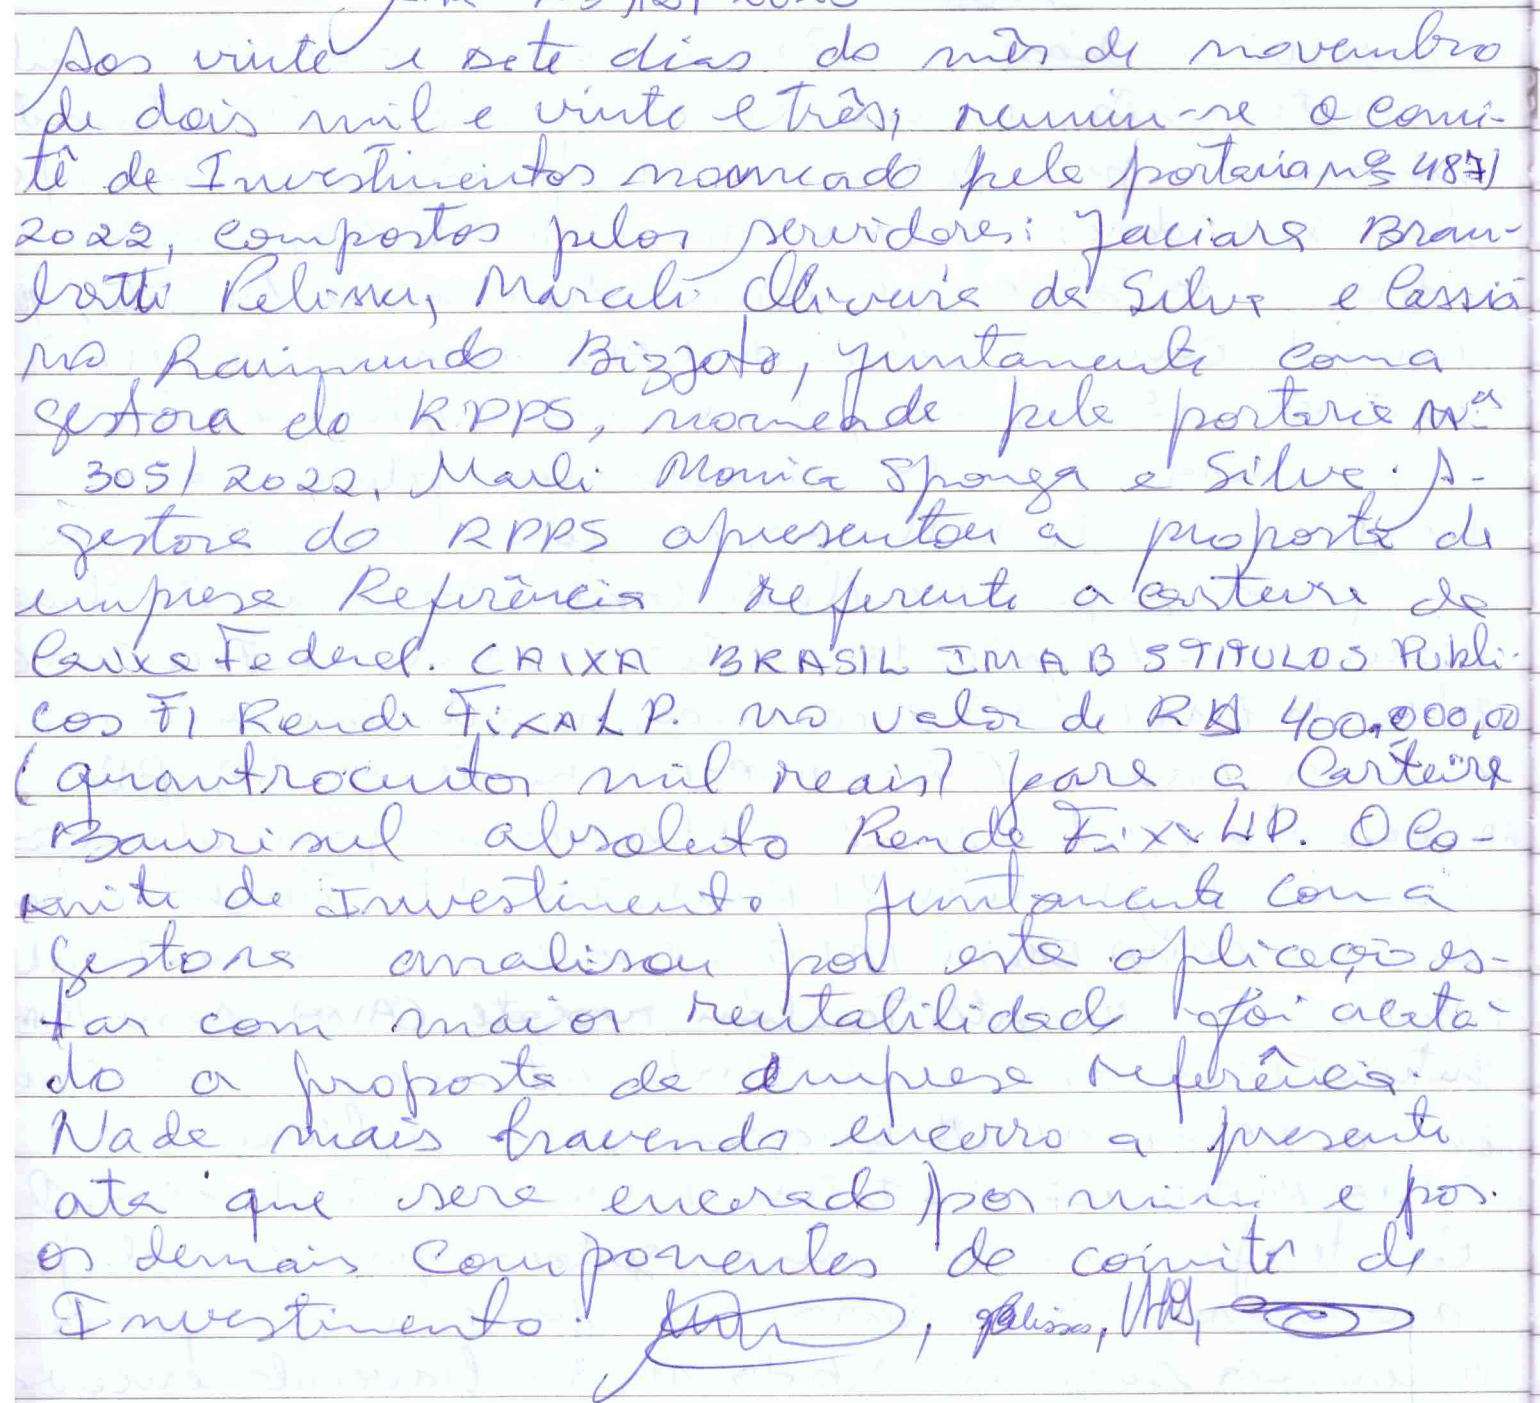 Aos vinte e sete dias do mês de novembro
de dois mil e vinte e três, reuniu-se o comi-
tê de Investimentos nomeado pela portaria nº 487/
2022, compostos pelos servidores: Jaciara Bram-
Pelisser, Marceli Oliveira da Silva e Cassia
no Raimundo Bizzoto, juntamente com a
gestora do RPPS, nomeada pela portaria Nº
305/2022, Marli Monica Sponga e Silva. A-
gestora do RPPS apresentou a proposta da
empresa Referência referente a carteira da
Caixa Federal. CAIXA BRASIL IMA B 5 TITULOS Publi-
cos FI Renda FixA LP. no valor de R$ 400.000,00
(quantrocentos mil reais) para a Carteira
Banrisul absoluto Renda Fixa LP. O Co-
mite de Investimento juntamente com a
gestora analisou por esta aplicação es-
tar com maior rentabilidade foi aceta-
do a proposta da empresa referência.
Nada mais travendo encerro a presente
ata que sera encerado por mim e por
os demais Componentes do comitê de
Investimento.